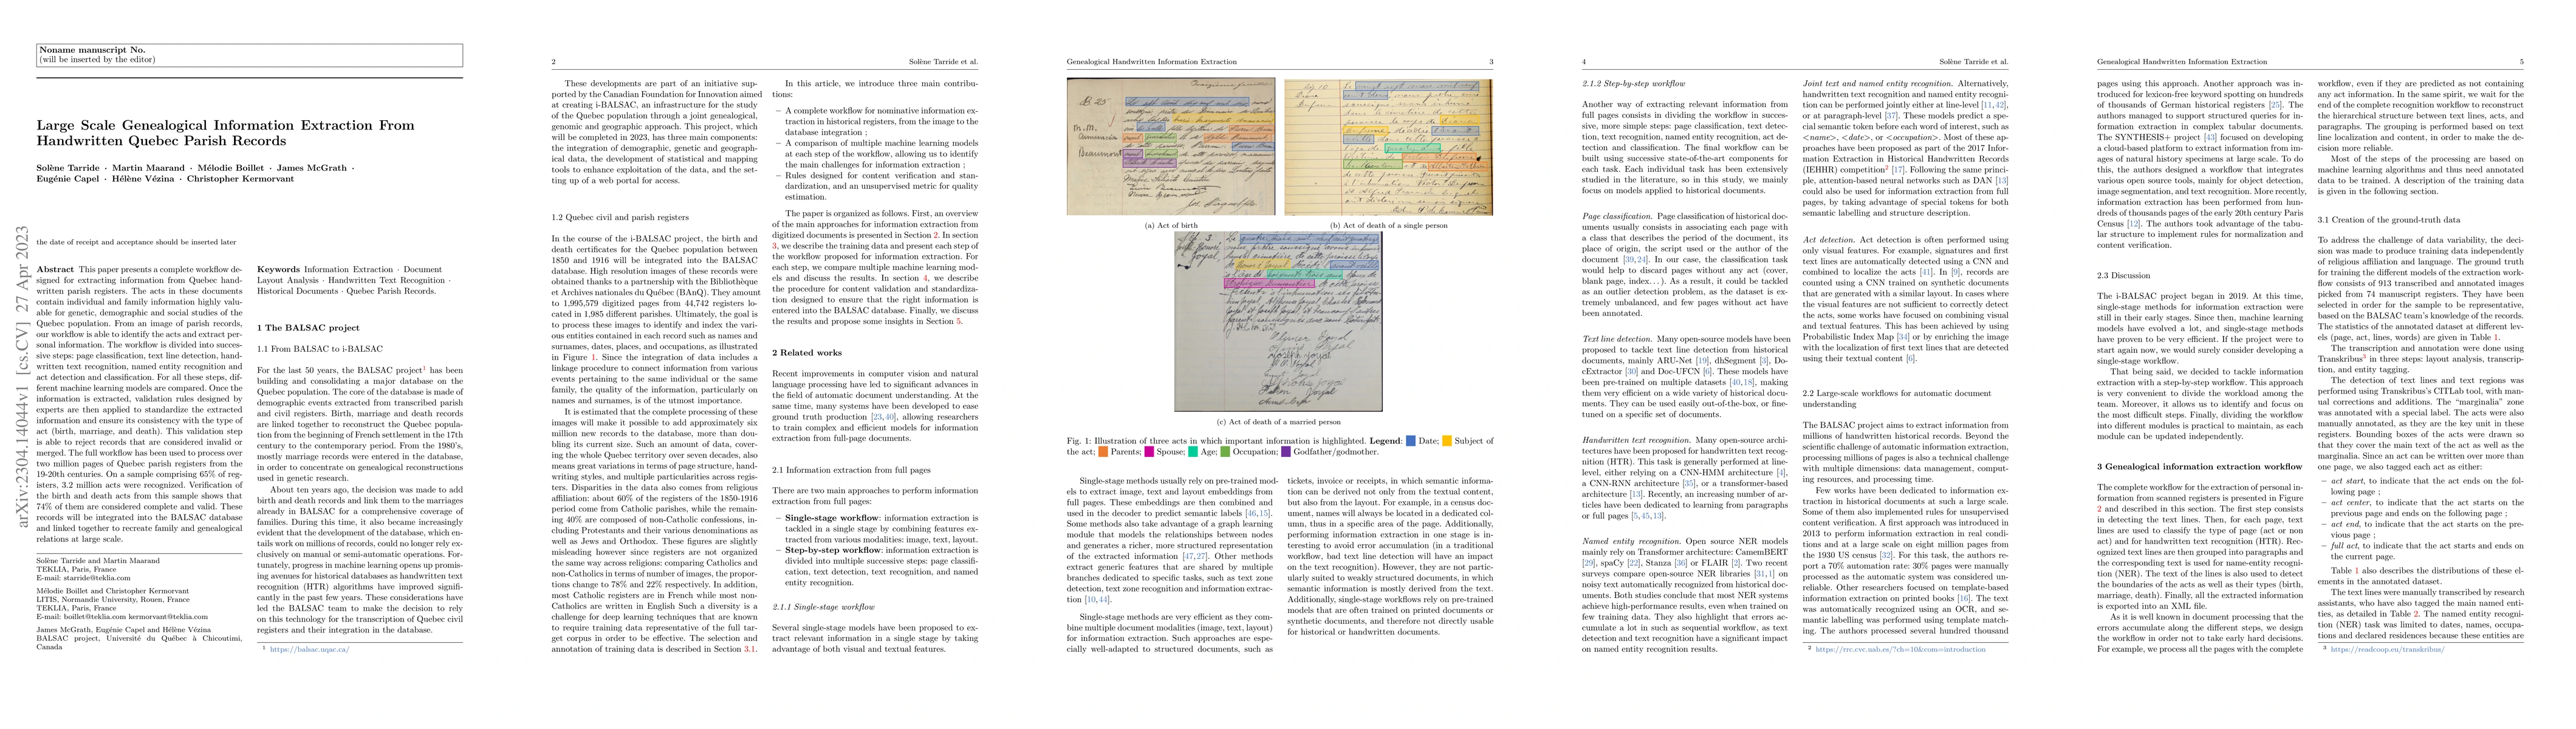 Noname manuscript No.
(will be inserted by the editor)
Large Scale Genealogical Information Extraction From
Handwritten Quebec Parish Records
Solène Tarride · Martin Maarand · Mélodie Boillet · James McGrath ·
Eugénie Capel · Hélène Vézina · Christopher Kermorvant
arXiv:2304.14044v1 [cs.CV] 27 Apr 2023
the date of receipt and acceptance should be inserted later
Abstract This paper presents a complete workflow de-
signed for extracting information from Quebec hand-
written parish registers. The acts in these documents
contain individual and family information highly valu-
able for genetic, demographic and social studies of the
Quebec population. From an image of parish records,
our workflow is able to identify the acts and extract per-
sonal information. The workflow is divided into succes-
sive steps: page classification, text line detection, hand-
written text recognition, named entity recognition and
act detection and classification. For all these steps, dif-
ferent machine learning models are compared. Once the
information is extracted, validation rules designed by
experts are then applied to standardize the extracted
information and ensure its consistency with the type of
act (birth, marriage, and death). This validation step
is able to reject records that are considered invalid or
merged. The full workflow has been used to process over
two million pages of Quebec parish registers from the
19-20th centuries. On a sample comprising 65% of reg-
isters, 3.2 million acts were recognized. Verification of
the birth and death acts from this sample shows that
74% of them are considered complete and valid. These
records will be integrated into the BALSAC database
and linked together to recreate family and genealogical
relations at large scale.
Solène Tarride and Martin Maarand
TEKLIA, Paris, France
E-mail: starride@teklia.com
Mélodie Boillet and Christopher Kermorvant
LITIS, Normandie University, Rouen, France
TEKLIA, Paris, France
E-mail: boillet@teklia.com kermorvant@teklia.com
James McGrath, Eugénie Capel and Hélène Vézina
BALSAC project, Université du Québec à Chicoutimi,
Canada
Keywords Information Extraction · Document
Layout Analysis · Handwritten Text Recognition ·
Historical Documents · Quebec Parish Records.
1 The BALSAC project
1.1 From BALSAC to i-BALSAC
For the last 50 years, the BALSAC project1 has been
building and consolidating a major database on the
Quebec population. The core of the database is made of
demographic events extracted from transcribed parish
and civil registers. Birth, marriage and death records
are linked together to reconstruct the Quebec popula-
tion from the beginning of French settlement in the 17th
century to the contemporary period. From the 1980's,
mostly marriage records were entered in the database,
in order to concentrate on genealogical reconstructions
used in genetic research.
About ten years ago, the decision was made to add
birth and death records and link them to the marriages
already in BALSAC for a comprehensive coverage of
families. During this time, it also became increasingly
evident that the development of the database, which en-
tails work on millions of records, could no longer rely ex-
clusively on manual or semi-automatic operations. For-
tunately, progress in machine learning opens up promis-
ing avenues for historical databases as handwritten text
recognition (HTR) algorithms have improved signifi-
cantly in the past few years. These considerations have
led the BALSAC team to make the decision to rely
on this technology for the transcription of Quebec civil
registers and their integration in the database.
1 https://balsac.uqac.ca/
2
Solène Tarride et al.
These developments are part of an initiative sup-
ported by the Canadian Foundation for Innovation aimed
at creating i-BALSAC, an infrastructure for the study
of the Quebec population through a joint genealogical,
genomic and geographic approach. This project, which
will be completed in 2023, has three main components:
the integration of demographic, genetic and geographi-
cal data, the development of statistical and mapping
tools to enhance exploitation of the data, and the set-
ting up of a web portal for access.
1.2 Quebec civil and parish registers
In the course of the i-BALSAC project, the birth and
death certificates for the Quebec population between
1850 and 1916 will be integrated into the BALSAC
database. High resolution images of these records were
obtained thanks to a partnership with the Bibliothèque
et Archives nationales du Québec (BAnQ). They amount
to 1,995,579 digitized pages from 44,742 registers lo-
cated in 1,985 different parishes. Ultimately, the goal is
to process these images to identify and index the vari-
ous entities contained in each record such as names and
surnames, dates, places, and occupations, as illustrated
in Figure 1. Since the integration of data includes a
linkage procedure to connect information from various
events pertaining to the same individual or the same
family, the quality of the information, particularly on
names and surnames, is of the utmost importance.
It is estimated that the complete processing of these
images will make it possible to add approximately six
million new records to the database, more than dou-
bling its current size. Such an amount of data, cover-
ing the whole Quebec territory over seven decades, also
means great variations in terms of page structure, hand-
writing styles, and multiple particularities across regis-
ters. Disparities in the data also comes from religious
affiliation: about 60% of the registers of the 1850-1916
period come from Catholic parishes, while the remain-
ing 40% are composed of non-Catholic confessions, in-
cluding Protestants and their various denominations as
well as Jews and Orthodox. These figures are slightly
misleading however since registers are not organized
the same way across religions: comparing Catholic and
non-Catholics in terms of number of images, the propor-
tions change to 78% and 22% respectively. In addition,
most Catholic registers are in French while most non-
Catholics are written in English Such a diversity is a
challenge for deep learning techniques that are known
to require training data representative of the full tar-
get corpus in order to be effective. The selection and
annotation of training data is described in Section 3.1.
In this article, we introduce three main contribu-
tions:
– A complete workflow for nominative information ex-
traction in historical registers, from the image to the
database integration ;
– A comparison of multiple machine learning models
at each step of the workflow, allowing us to identify
the main challenges for information extraction ;
– Rules designed for content verification and stan-
dardization, and an unsupervised metric for quality
estimation.
The paper is organized as follows. First, an overview
of the main approaches for information extraction from
digitized documents is presented in Section 2. In section
3, we describe the training data and present each step of
the workflow proposed for information extraction. For
each step, we compare multiple machine learning mod-
els and discuss the results. In section 4, we describe
the procedure for content validation and standardiza-
tion designed to ensure that the right information is
entered into the BALSAC database. Finally, we discuss
the results and propose some insights in Section 5.
2 Related works
Recent improvements in computer vision and natural
language processing have led to significant advances in
the field of automatic document understanding. At the
same time, many systems have been developed to ease
ground truth production [23,40], allowing researchers
to train complex and efficient models for information
extraction from full-page documents.
2.1 Information extraction from full pages
There are two main approaches to perform information
extraction from full pages:
– Single-stage workflow: information extraction is
tackled in a single stage by combining features ex-
tracted from various modalities: image, text, layout.
– Step-by-step workflow: information extraction is
divided into multiple successive steps: page classifi-
cation, text detection, text recognition, and named
entity recognition.
2.1.1 Single-stage workflow
Several single-stage models have been proposed to ex-
tract relevant information in a single stage by taking
advantage of both visual and textual features.
Genealogical Handwritten Information Extraction
3
(a) Act of birth
(b) Act of death of a single person
(c) Act of death of a married person
Fig. 1: Illustration of three acts in which important information is highlighted. Legend: Date; Subject of
the act; Parents; Spouse; Age; Occupation; Godfather/godmother.
Single-stage methods usually rely on pre-trained mod-
els to extract image, text and layout embeddings from
full pages. These embeddings are then combined and
used in the decoder to predict semantic labels [46,15].
Some methods also take advantage of a graph learning
module that models the relationships between nodes
and generates a richer, more structured representation
of the extracted information [47,27]. Other methods
extract generic features that are shared by multiple
branches dedicated to specific tasks, such as text zone
detection, text zone recognition and information extrac-
tion [10,44].
Single-stage methods are very efficient as they com-
bine multiple document modalities (image, text, layout)
for information extraction. Such approaches are espe-
cially well-adapted to structured documents, such as
tickets, invoice or receipts, in which semantic informa-
tion can be derived not only from the textual content,
but also from the layout. For example, in a census doc-
ument, names will always be located in a dedicated col-
umn, thus in a specific area of the page. Additionally,
performing information extraction in one stage is in-
teresting to avoid error accumulation (in a traditional
workflow, bad text line detection will have an impact
on the text recognition). However, they are not partic-
ularly suited to weakly structured documents, in which
semantic information is mostly derived from the text.
Additionally, single-stage workflows rely on pre-trained
models that are often trained on printed documents or
synthetic documents, and therefore not directly usable
for historical or handwritten documents.
4
Solène Tarride et al.
2.1.2 Step-by-step workflow
Another way of extracting relevant information from
full pages consists in dividing the workflow in succes-
sive, more simple steps: page classification, text detec-
tion, text recognition, named entity recognition, act de-
tection and classification. The final workflow can be
built using successive state-of-the-art components for
each task. Each individual task has been extensively
studied in the literature, so in this study, we mainly
focus on models applied to historical documents.
Page classification. Page classification of historical doc-
uments usually consists in associating each page with
a class that describes the period of the document, its
place of origin, the script used or the author of the
document [39,24]. In our case, the classification task
would help to discard pages without any act (cover,
blank page, index...). As a result, it could be tackled
as an outlier detection problem, as the dataset is ex-
tremely unbalanced, and few pages without act have
been annotated.
Text line detection. Many open-source models have been
proposed to tackle text line detection from historical
documents, mainly ARU-Net [19], dhSegment [3], Do-
cExtractor [30] and Doc-UFCN [6]. These models have
been pre-trained on multiple datasets [40,18], making
them very efficient on a wide variety of historical docu-
ments. They can be used easily out-of-the-box, or fine-
tuned on a specific set of documents.
Handwritten text recognition. Many open-source archi-
tectures have been proposed for handwritten text recog-
nition (HTR). This task is generally performed at line-
level, either relying on a CNN-HMM architecture [4],
a CNN-RNN architecture [35], or a transformer-based
architecture [13]. Recently, an increasing number of ar-
ticles have been dedicated to learning from paragraphs
or full pages [5,45,13].
Named entity recognition. Open source NER models
mainly rely on Transformer architecture: CamemBERT
[29], spaCy [22], Stanza [36] or FLAIR [2]. Two recent
surveys compare open-source NER libraries [31,1] on
noisy text automatically recognized from historical doc-
uments. Both studies conclude that most NER systems
achieve high-performance results, even when trained on
few training data. They also highlight that errors ac-
cumulate a lot in such as sequential workflow, as text
detection and text recognition have a significant impact
on named entity recognition results.
Joint text and named entity recognition. Alternatively,
handwritten text recognition and named entity recogni-
tion can be performed jointly either at line-level [11,42],
or at paragraph-level [37]. These models predict a spe-
cial semantic token before each word of interest, such as
<name>, <date>, or <occupation>. Most of these ap-
proaches have been proposed as part of the 2017 Infor-
mation Extraction in Historical Handwritten Records
(IEHHR) competition2 [17]. Following the same princi-
ple, attention-based neural networks such as DAN [13]
could also be used for information extraction from full
pages, by taking advantage of special tokens for both
semantic labelling and structure description.
Act detection. Act detection is often performed using
only visual features. For example, signatures and first
text lines are automatically detected using a CNN and
combined to localize the acts [41]. In [9], records are
counted using a CNN trained on synthetic documents
that are generated with a similar layout. In cases where
the visual features are not sufficient to correctly detect
the acts, some works have focused on combining visual
and textual features. This has been achieved by using
Probabilistic Index Map [34] or by enriching the image
with the localization of first text lines that are detected
using their textual content [6].
2.2 Large-scale workflows for automatic document
understanding
The BALSAC project aims to extract information from
millions of handwritten historical records. Beyond the
scientific challenge of automatic information extraction,
processing millions of pages is also a technical challenge
with multiple dimensions: data management, comput-
ing resources, and processing time.
Few works have been dedicated to information extrac-
tion in historical documents at such a large scale.
Some of them also implemented rules for unsupervised
content verification. A first approach was introduced in
2013 to perform information extraction in real condi-
tions and at a large scale on eight million pages from
the 1930 US census [32]. For this task, the authors re-
port a 70% automation rate: 30% pages were manually
processed as the automatic system was considered un-
reliable. Other researchers focused on template-based
information extraction on printed books [16]. The text
was automatically recognized using an OCR, and se-
mantic labelling was performed using template match-
ing. The authors processed several hundred thousand
2 https://rrc.cvc.uab.es/?ch=10&com=introduction
Genealogical Handwritten Information Extraction
5
pages using this approach. Another approach was in-
troduced for lexicon-free keyword spotting on hundreds
of thousands of German historical registers [25]. The
authors managed to support structured queries for in-
formation extraction in complex tabular documents.
The SYNTHESIS+ project [43] focused on developing
a cloud-based platform to extract information from
images of natural history specimens at large scale. To do
this, the authors designed a workflow that integrates
various open source tools, mainly for object detection,
image segmentation, and text recognition. More recently,
information extraction has been performed from hun-
dreds of thousands pages of the early 20th century Paris
Census [12]. The authors took advantage of the tabu-
lar structure to implement rules for normalization and
content verification.
2.3 Discussion
The i-BALSAC project began in 2019. At this time,
single-stage methods for information extraction were
still in their early stages. Since then, machine learning
models have evolved a lot, and single-stage methods
have proven to be very efficient. If the project were to
start again now, we would surely consider developing a
single-stage workflow.
That being said, we decided to tackle information
extraction with a step-by-step workflow. This approach
is very convenient to divide the workload among the
team. Moreover, it allows us to identify and focus on
the most difficult steps. Finally, dividing the workflow
into different modules is practical to maintain, as each
module can be updated independently.
3 Genealogical information extraction workflow
The complete workflow for the extraction of personal in-
formation from scanned registers is presented in Figure
2 and described in this section. The first step consists
in detecting the text lines. Then, for each page, text
lines are used to classify the type of page (act or non
act) and for handwritten text recognition (HTR). Rec-
ognized text lines are then grouped into paragraphs and
the corresponding text is used for name-entity recogni-
tion (NER). The text of the lines is also used to detect
the boundaries of the acts as well as their types (birth,
marriage, death). Finally, all the extracted information
is exported into an XML file.
As it is well known in document processing that the
errors accumulate along the different steps, we design
the workflow in order not to take early hard decisions.
For example, we process all the pages with the complete
workflow, even if they are predicted as not containing
any act information. In the same spirit, we wait for the
end of the complete recognition workflow to reconstruct
the hierarchical structure between text lines, acts, and
paragraphs. The grouping is performed based on text
line localization and content, in order to make the de-
cision more reliable.
Most of the steps of the processing are based on
machine learning algorithms and thus need annotated
data to be trained. A description of the training data
is given in the following section.
3.1 Creation of the ground-truth data
To address the challenge of data variability, the deci-
sion was made to produce training data independently
of religious affiliation and language. The ground truth
for training the different models of the extraction work-
flow consists of 913 transcribed and annotated images
picked from 74 manuscript registers. They have been
selected in order for the sample to be representative,
based on the BALSAC team's knowledge of the records.
The statistics of the annotated dataset at different lev-
els (page, act, lines, words) are given in Table 1.
The transcription and annotation were done using
Transkribus3 in three steps: layout analysis, transcrip-
tion, and entity tagging.
The detection of text lines and text regions was
performed using Transkribus's CITLab tool, with man-
ual corrections and additions. The "marginalia" zone
was annotated with a special label. The acts were also
manually annotated, as they are the key unit in these
registers. Bounding boxes of the acts were drawn so
that they cover the main text of the act as well as the
marginalia. Since an act can be written over more than
one page, we also tagged each act as either:
– act start, to indicate that the act ends on the fol-
lowing page ;
– act center, to indicate that the act starts on the
previous page and ends on the following page ;
– act end, to indicate that the act starts on the pre-
vious page ;
– full act, to indicate that the act starts and ends on
the current page.
Table 1 also describes the distributions of these el-
ements in the annotated dataset.
The text lines were manually transcribed by research
assistants, who have also tagged the main named enti-
ties, as detailed in Table 2. The named entity recogni-
tion (NER) task was limited to dates, names, occupa-
tions and declared residences because these entities are
3 https://readcoop.eu/transkribus/